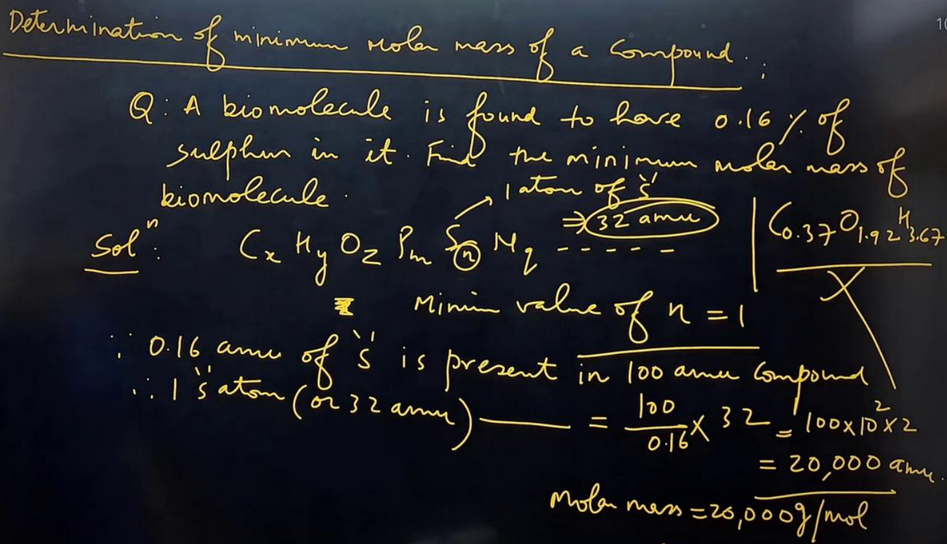 10
Determination of minimum molar mass of a compound.
Q: A biomolecule is found to have 0.16 % of
sulphur in it. Find the minimum molar mass of
biomolecule.
1 atom of 'S'
⇒ 32 amu
Solⁿ: Cx Hy Oz Pm Sn Mq - - - - -
C0.37 O1.92 H3.67
Minim value of n = 1
∵ 0.16 amu of 'S' is present in 100 amu compound
∴ 1 'S' atom (or 32 amu) —— = 100/0.16 × 32 = 100×10²×2
= 20,000 amu.
Molar mass = 20,000g/mol